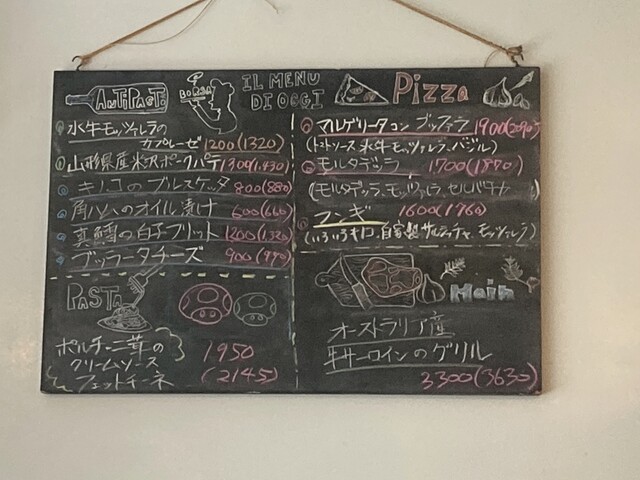 AnTiPasTi
BORSA
IL MENU
DI OGGI
水牛モッツァレラの
カプレーゼ 1200(1320)
山形県産米沢ポークパテ 1300(1430)
キノコのブルスケッタ 800(880)
角ハムのオイル漬け 600(660)
真鱈の白子フリット 1200(1320)
ブッラータチーズ 900(990)
PASTA
ポルチーニ茸の
クリームソース
フェットチーネ
1950
(2145)
Pizza
マルゲリータコン ブッファラ 1900(2090)
(トマトソース 水牛モッツァレラ、バジル)
モルタデッラ 1700(1870)
(モルタデッラ、モッツァレラ、セルバチカ
フンギ 1600(1760)
(いろいろキノコ、自家製サルシッチャ、モッツァレラ)
Main
オーストラリア産
牛サーロインのグリル
3300(3630)